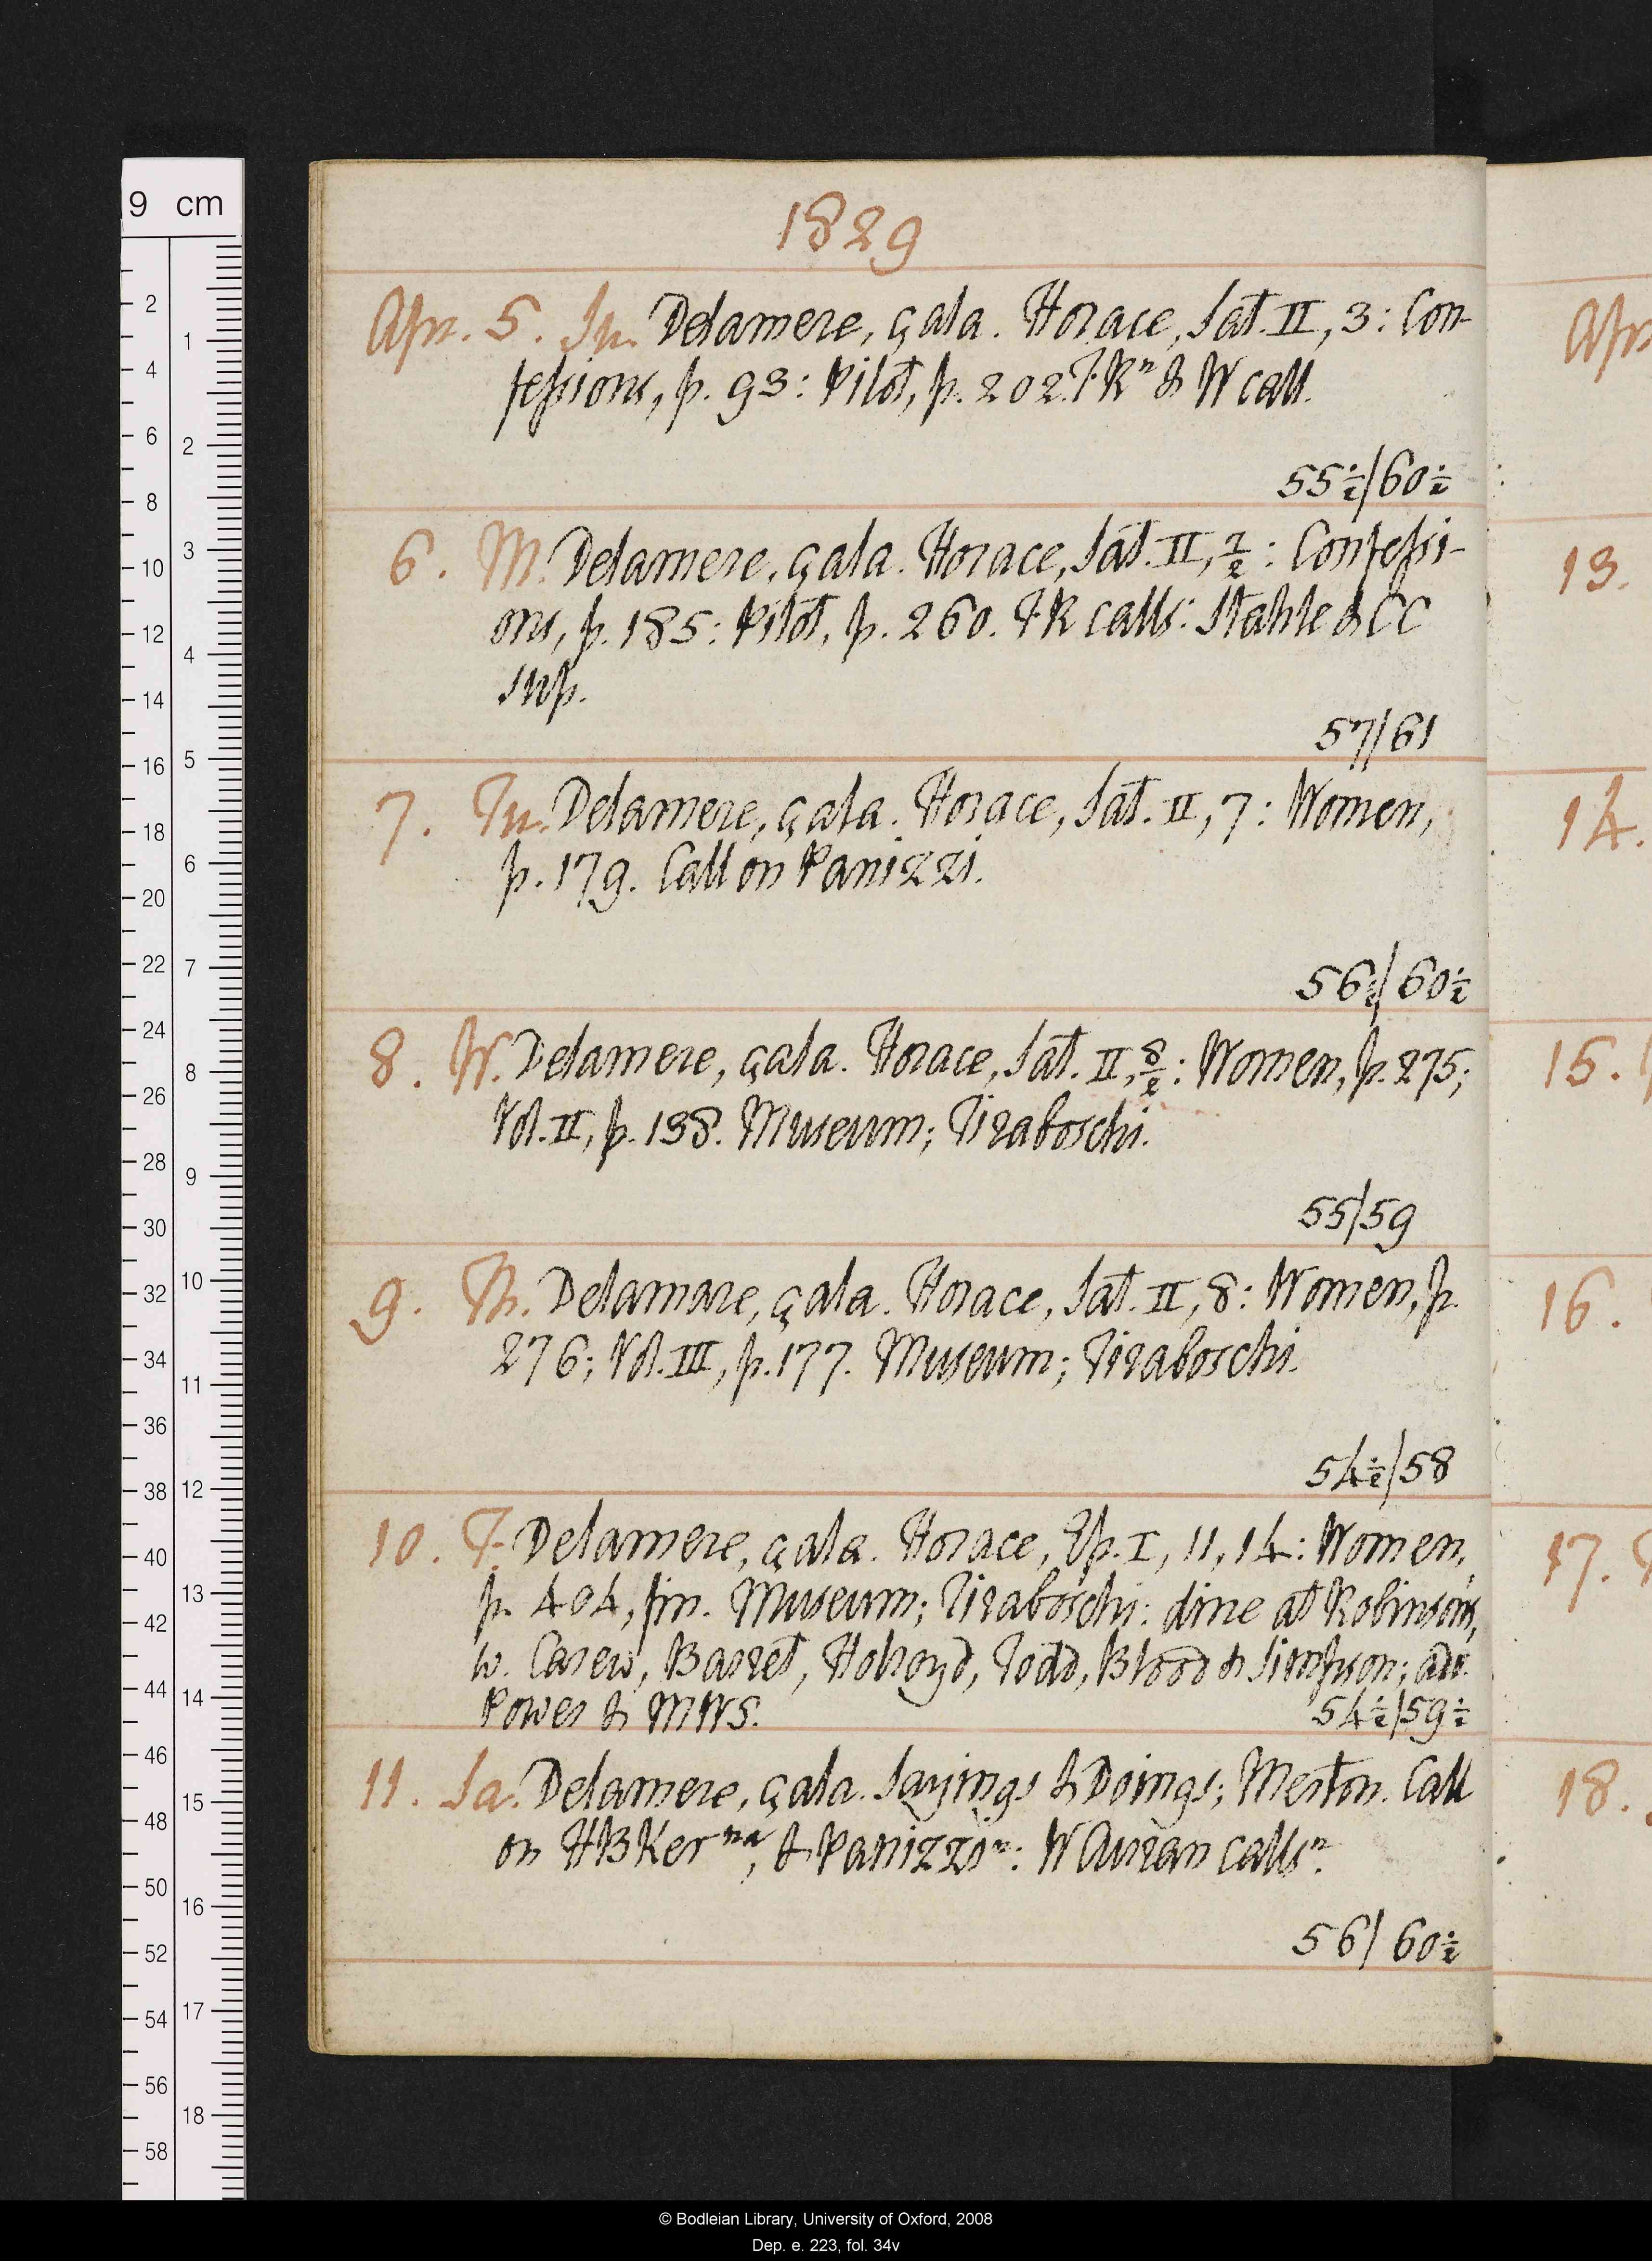 9 cm
1829
Apr. 5. Su. Delamere, çala. Horace, Sat. II, 3: Con-
fessions, p. 93: Pilot, p. 202. TRⁿ & W call.
55½/60½
6. M. Delamere, çala. Horace, Sat. II, : Confessi-
ons, p. 185: Pilot, p. 260. TR calls: Stahle & CC
sup.
57/61
7. Tu. Delamere, çala. Horace, Sat. II, 7: Women,
p. 179. Call on Panizzi.
56½/60½
8. W. Delamere, çala. Horace, Sat. II, 8/2: Women, p. 275;
Vol. II, p. 138. Museum; Tiraboschi.
55/59
9. Th. Delamare, çala. Horace, Sat. II, 8: Women, p.
276; Vol. III, p. 177. Museum; Tiraboschi.
54½/58
10. F. Delamere, çala. Horace, Ep. I, 11, 14: Women,
p. 404, fin. Museum; Tiraboschi: dine at Robinson's,
w. Carew, Barret, Holroyd, Todd, Blood & Simpson; adv.
Power & MWS.
54½/59½
11. Sa. Delamere, çala. Sayings & Doings; Merton. Call
on HBKer ⁿᵃ, & Panizziⁿ: W Curran callsⁿ.
56/60½
Apr
13.
14.
15.
16.
17.
18.
© Bodleian Library, University of Oxford, 2008
Dep. e. 223, fol. 34v